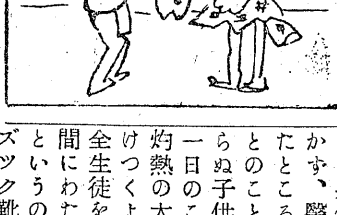 かず、醫
たところ
とのこと
らぬ子供
一日のこ
灼熱の太
けつくよ
全生徒を
間にわた
というの
ズック靴